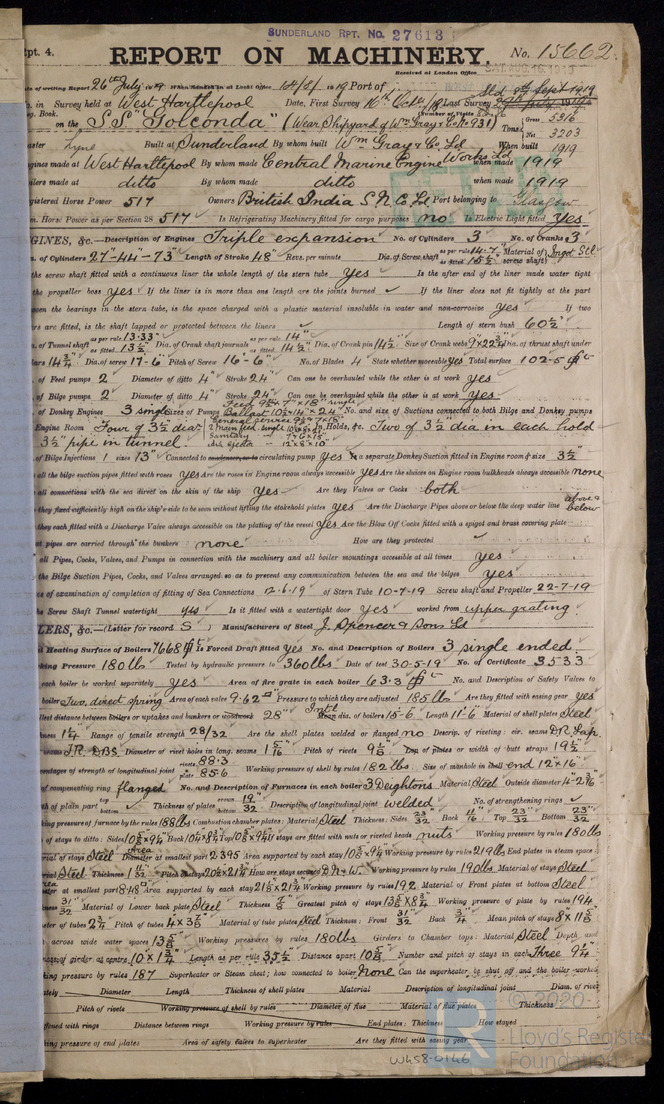 SUNDERLAND RPT. No. 27613
Rpt. 4.
REPORT ON MACHINERY. No. 15662.
Received at London Office
SAT. AUG. 16. 1919
of writing Report 26th July 1919 When handed in at Local Office 14/8/1919 Port of
in Survey held at West Hartlepool Date, First Survey 16th Last Survey
on the S.S "Golconda" (Wear Shipyard of Wm Gray & Co No 931) Tons Gross 5316 Net 3203
Master Built at Sunderland By whom built Wm Gray & Co. Ld When built 1919
Engines made at West Hartlepool By whom made Central Marine Engine Works Ld when made 1919
Boilers made at ditto By whom made ditto when made 1919
Registered Horse Power 517 Owners British India S.N. Co Ld Port belonging to Glasgow
Nom. Horse Power as per Section 28 517 Is Refrigerating Machinery fitted for cargo purposes no Is Electric Light fitted Yes
ENGINES, &c.—Description of Engines Triple expansion No. of Cylinders 3 No. of Cranks 3
of Cylinders 27"-44-73" Length of Stroke 48" Revs. per minute Dia. of Screw shaft as per rule 14.7" as fitted 15½" Material of screw shaft Ingot Stl
the screw shaft fitted with a continuous liner the whole length of the stern tube Yes Is the after end of the liner made water tight
the propeller boss yes If the liner is in more than one length are the joints burned If the liner does not fit tightly at the part
the bearings in the stern tube, is the space charged with a plastic material insoluble in water and non-corrosive yes If two
liners are fitted, is the shaft lapped or protected between the liners Length of stern bush 60½"
of Tunnel shaft as per rule 13.33" as fitted 13½" Dia. of Crank shaft journals as per rule 14" as fitted 14½" Dia. of Crank pin 14½" Size of Crank webs 9"x22¾" Dia. of thrust shaft under
collars 14¾" Dia. of screw 17-6" Pitch of Screw 16'-6" No. of Blades 4 State whether moveable yes Total surface 102.5 ft
of Feed pumps 2 Diameter of ditto 4" Stroke 24" Can one be overhauled while the other is at work yes
of Bilge pumps 2 Diameter of ditto 4" Stroke 24" Can one be overhauled while the other is at work yes
of Donkey Engines 3 single Sizes of Pumps Ballast 10½x14"x24" No. and size of Suctions connected to both Bilge and Donkey pumps
Engine Room Four of 3½ dia In Holds, &c. Two of 3½ dia in each hold
3½" pipe in tunnel
of Bilge Injections 1 sizes 13" Connected to circulating pump Yes Is a separate Donkey Suction fitted in Engine room & size 3½
all the bilge suction pipes fitted with roses yes Are the roses in Engine room always accessible yes Are the sluices on Engine room bulkheads always accessible none
all connections with the sea direct on the skin of the ship yes Are they Valves or Cocks both
they fixed sufficiently high on the ship's side to be seen without lifting the stokehold plates yes Are the Discharge Pipes above or below the deep water line above & below
they each fitted with a Discharge Valve always accessible on the plating of the vessel yes Are the Blow Off Cocks fitted with a spigot and brass covering plate
pipes are carried through the bunkers none How are they protected
all Pipes, Cocks, Valves, and Pumps in connection with the machinery and all boiler mountings accessible at all times yes
the Bilge Suction Pipes, Cocks, and Valves arranged so as to prevent any communication between the sea and the bilges yes
of examination of completion of fitting of Sea Connections 12.6.19 of Stern Tube 10-7-19 Screw shaft and Propeller 22-7-19
the Screw Shaft Tunnel watertight yes Is it fitted with a watertight door yes worked from upper grating
BOILERS, &c.—(Letter for record S) Manufacturers of Steel J. Spencer & Sons Ld
Heating Surface of Boilers 7668 Is Forced Draft fitted yes No. and Description of Boilers 3 single ended
Working Pressure 180 lbs Tested by hydraulic pressure to 360 lbs Date of test 30-5-19 No. of Certificate 3533
each boiler be worked separately yes Area of fire grate in each boiler 63.3 No. and Description of Safety Valves to
boiler Two, direct spring Area of each valve 9.62 Pressure to which they are adjusted 185 lbs Are they fitted with easing gear yes
distance between boilers or uptakes and bunkers or woodwork 28" Intl dia. of boilers 15-6" Length 11'-6" Material of shell plates Steel
1¼ Range of tensile strength 28/32 Are the shell plates welded or flanged no Descrip. of riveting: cir. seams D.R. Lap
seams T.R. D.B.S Diameter of rivet holes in long. seams 1 5/16 Pitch of rivets 9⅛ Lap of plates or width of butt straps 19½
percentages of strength of longitudinal joint rivets 88.3 plate 85.6 Working pressure of shell by rules 182 lbs Size of manhole in shell end 12 x 16
of compensating ring flanged No. and Description of Furnaces in each boiler 3 Deightons Material Steel Outside diameter
of plain part top bottom Thickness of plates crown 19/32 bottom Description of longitudinal joint welded No. of strengthening rings
Working pressure of furnace by the rules 188 lbs Combustion chamber plates: Material Steel Thickness: Sides 23/32 Back 11/16 Top 23/32 Bottom 23/32
of stays to ditto: Sides 10⅝x9¼ Back Top 10⅝x9¼ If stays are fitted with nuts or riveted heads nuts Working pressure by rules 180 lbs
of stays Steel Area at smallest part 2.395 Area supported by each stay 10⅝x9¼ Working pressure by rules 219 lbs End plates in steam space:
Steel Thickness Pitch of stays How are stays secured D.N.&W. Working pressure by rules 190 lbs Material of stays Steel
at smallest part 8.48 Area supported by each stay 21½x21¾ Working pressure by rules 192 Material of Front plates at bottom Steel
31/32 Material of Lower back plate Steel Thickness ⅞ Greatest pitch of stays 13⅝x8¾ Working pressure of plate by rules 194
of tubes 2¾ Pitch of tubes 4x3⅞ Material of tube plates Steel Thickness: Front 31/32 Back ¾ Mean pitch of stays 8"x11⅝
across wide water spaces 13⅝ Working pressures by rules 180 lbs Girders to Chamber tops: Material Steel Depth and
of girder at centre 10x1¾ Length as per rule 35½ Distance apart 10⅝ Number and pitch of stays in each Three 9¼
Working pressure by rules 187 Superheater or Steam chest; how connected to boiler None Can the superheater be shut off and the boiler worked
Diameter Length Thickness of shell plates Material Description of longitudinal joint Diam. of rivet
Pitch of rivets Working pressure of shell by rules Diameter of flue Material of flue plates Thickness
with rings Distance between rings Working pressure by rules End plates: Thickness How stayed
Working pressure of end plates Area of safety valves to superheater Are they fitted with easing gear
© 2020
Lloyd's Register
Foundation
W458-0146